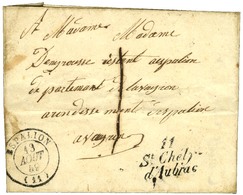 A Madame
Madame
restant aspalion
departement de laveyron
arondissement despalion
aveyron
1
ESPALION
13
AOUT
(11)
11
St Chely
d'Aubrac